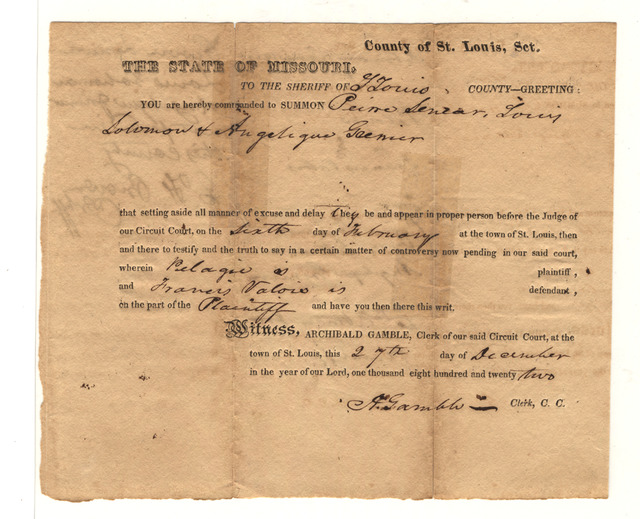 County of St. Louis, Sct.
THE STATE OF MISSOURI,
TO THE SHERIFF OF St Louis COUNTY—GREETING:
YOU are hereby commanded to SUMMON Pierre Louis
Solomon & Angelique Grenier
that setting aside all manner of excuse and delay they be and appear in proper person before the Judge of
our Circuit Court, on the Sixth day of February at the town of St. Louis, then
and there to testify and the truth to say in a certain matter of controversy now pending in our said court,
wherein Pelagie is plaintiff,
and Francis Valois is defendant,
on the part of the Plaintiff and have you then there this writ.
Witness, ARCHIBALD GAMBLE, Clerk of our said Circuit Court, at the
town of St. Louis, this 27th day of December
in the year of our Lord, one thousand eight hundred and twenty two
A Gamble Clerk, C. C.